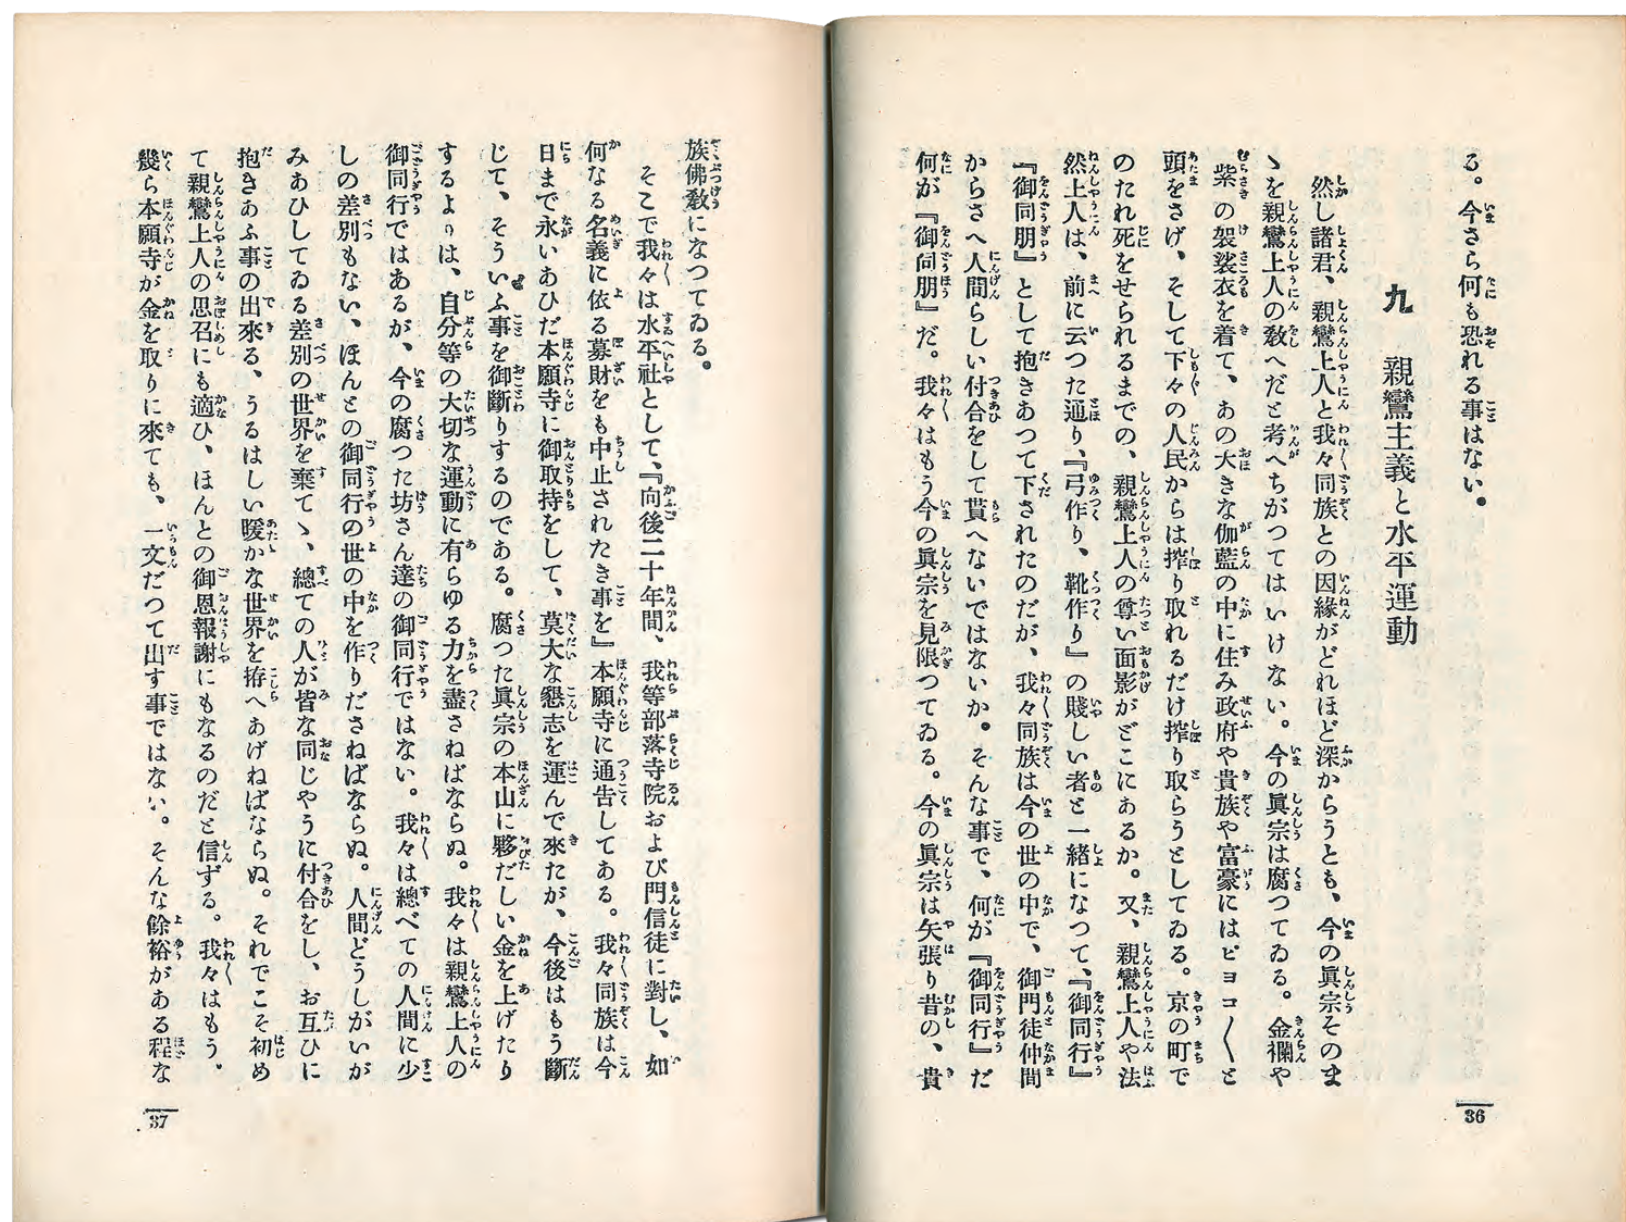 る。今さら何も恐れる事はない。
九　親鸞主義と水平運動
然し諸君、親鸞上人と我々同族との因縁がどれほど深からうとも、今の眞宗そのま
ゝを親鸞上人の敎へだと考へちがつてはいけない。今の眞宗は腐つてゐる。金襴や
紫の袈裟衣を着て、あの大きな伽藍の中に住み政府や貴族や富豪にはピヨコ〳〵と
頭をさげ、そして下々の人民からは搾り取れるだけ搾り取らうとしてゐる。京の町で
のたれ死をせられるまでの、親鸞上人の尊い面影がどこにあるか。又、親鸞上人や法
然上人は、前に云つた通り、『弓作り、靴作り』の賤しい者と一緒になつて、『御同行』
『御同朋』として抱きあつて下されたのだが、我々同族は今の世の中で、御門徒仲間
からさへ人間らしい付合をして貰へないではないか。そんな事で、何が『御同行』だ
何が『御同朋』だ。我々はもう今の眞宗を見限つてゐる。今の眞宗は矢張り昔の、貴
36
族佛敎になつてゐる。
そこで我々は水平社として、『向後二十年間、我等部落寺院および門信徒に對し、如
何なる名義に依る募財をも中止されたき事を』本願寺に通告してある。我々同族は今
日まで永いあひだ本願寺に御取持をして、莫大な懇志を運んで來たが、今後はもう斷
じて、そういふ事を御斷りするのである。腐つた眞宗の本山に夥だしい金を上げたり
するよりは、自分等の大切な運動に有らゆる力を盡さねばならぬ。我々は親鸞上人の
御同行ではあるが、今の腐つた坊さん達の御同行ではない。我々は總べての人間に少
しの差別もない、ほんとの御同行の世の中を作りださねばならぬ。人間どうしがいが
みあひしてゐる差別の世界を棄てゝ、總ての人が皆な同じやうに付合をし、お互ひに
抱きあふ事の出來る、うるはしい暖かな世界を拵へあげねばならぬ。それでこそ初め
て親鸞上人の思召にも適ひ、ほんとの御恩報謝にもなるのだと信ずる。我々はもう。
幾ら本願寺が金を取りに來ても、一文だつて出す事ではない。そんな餘裕がある程な
37